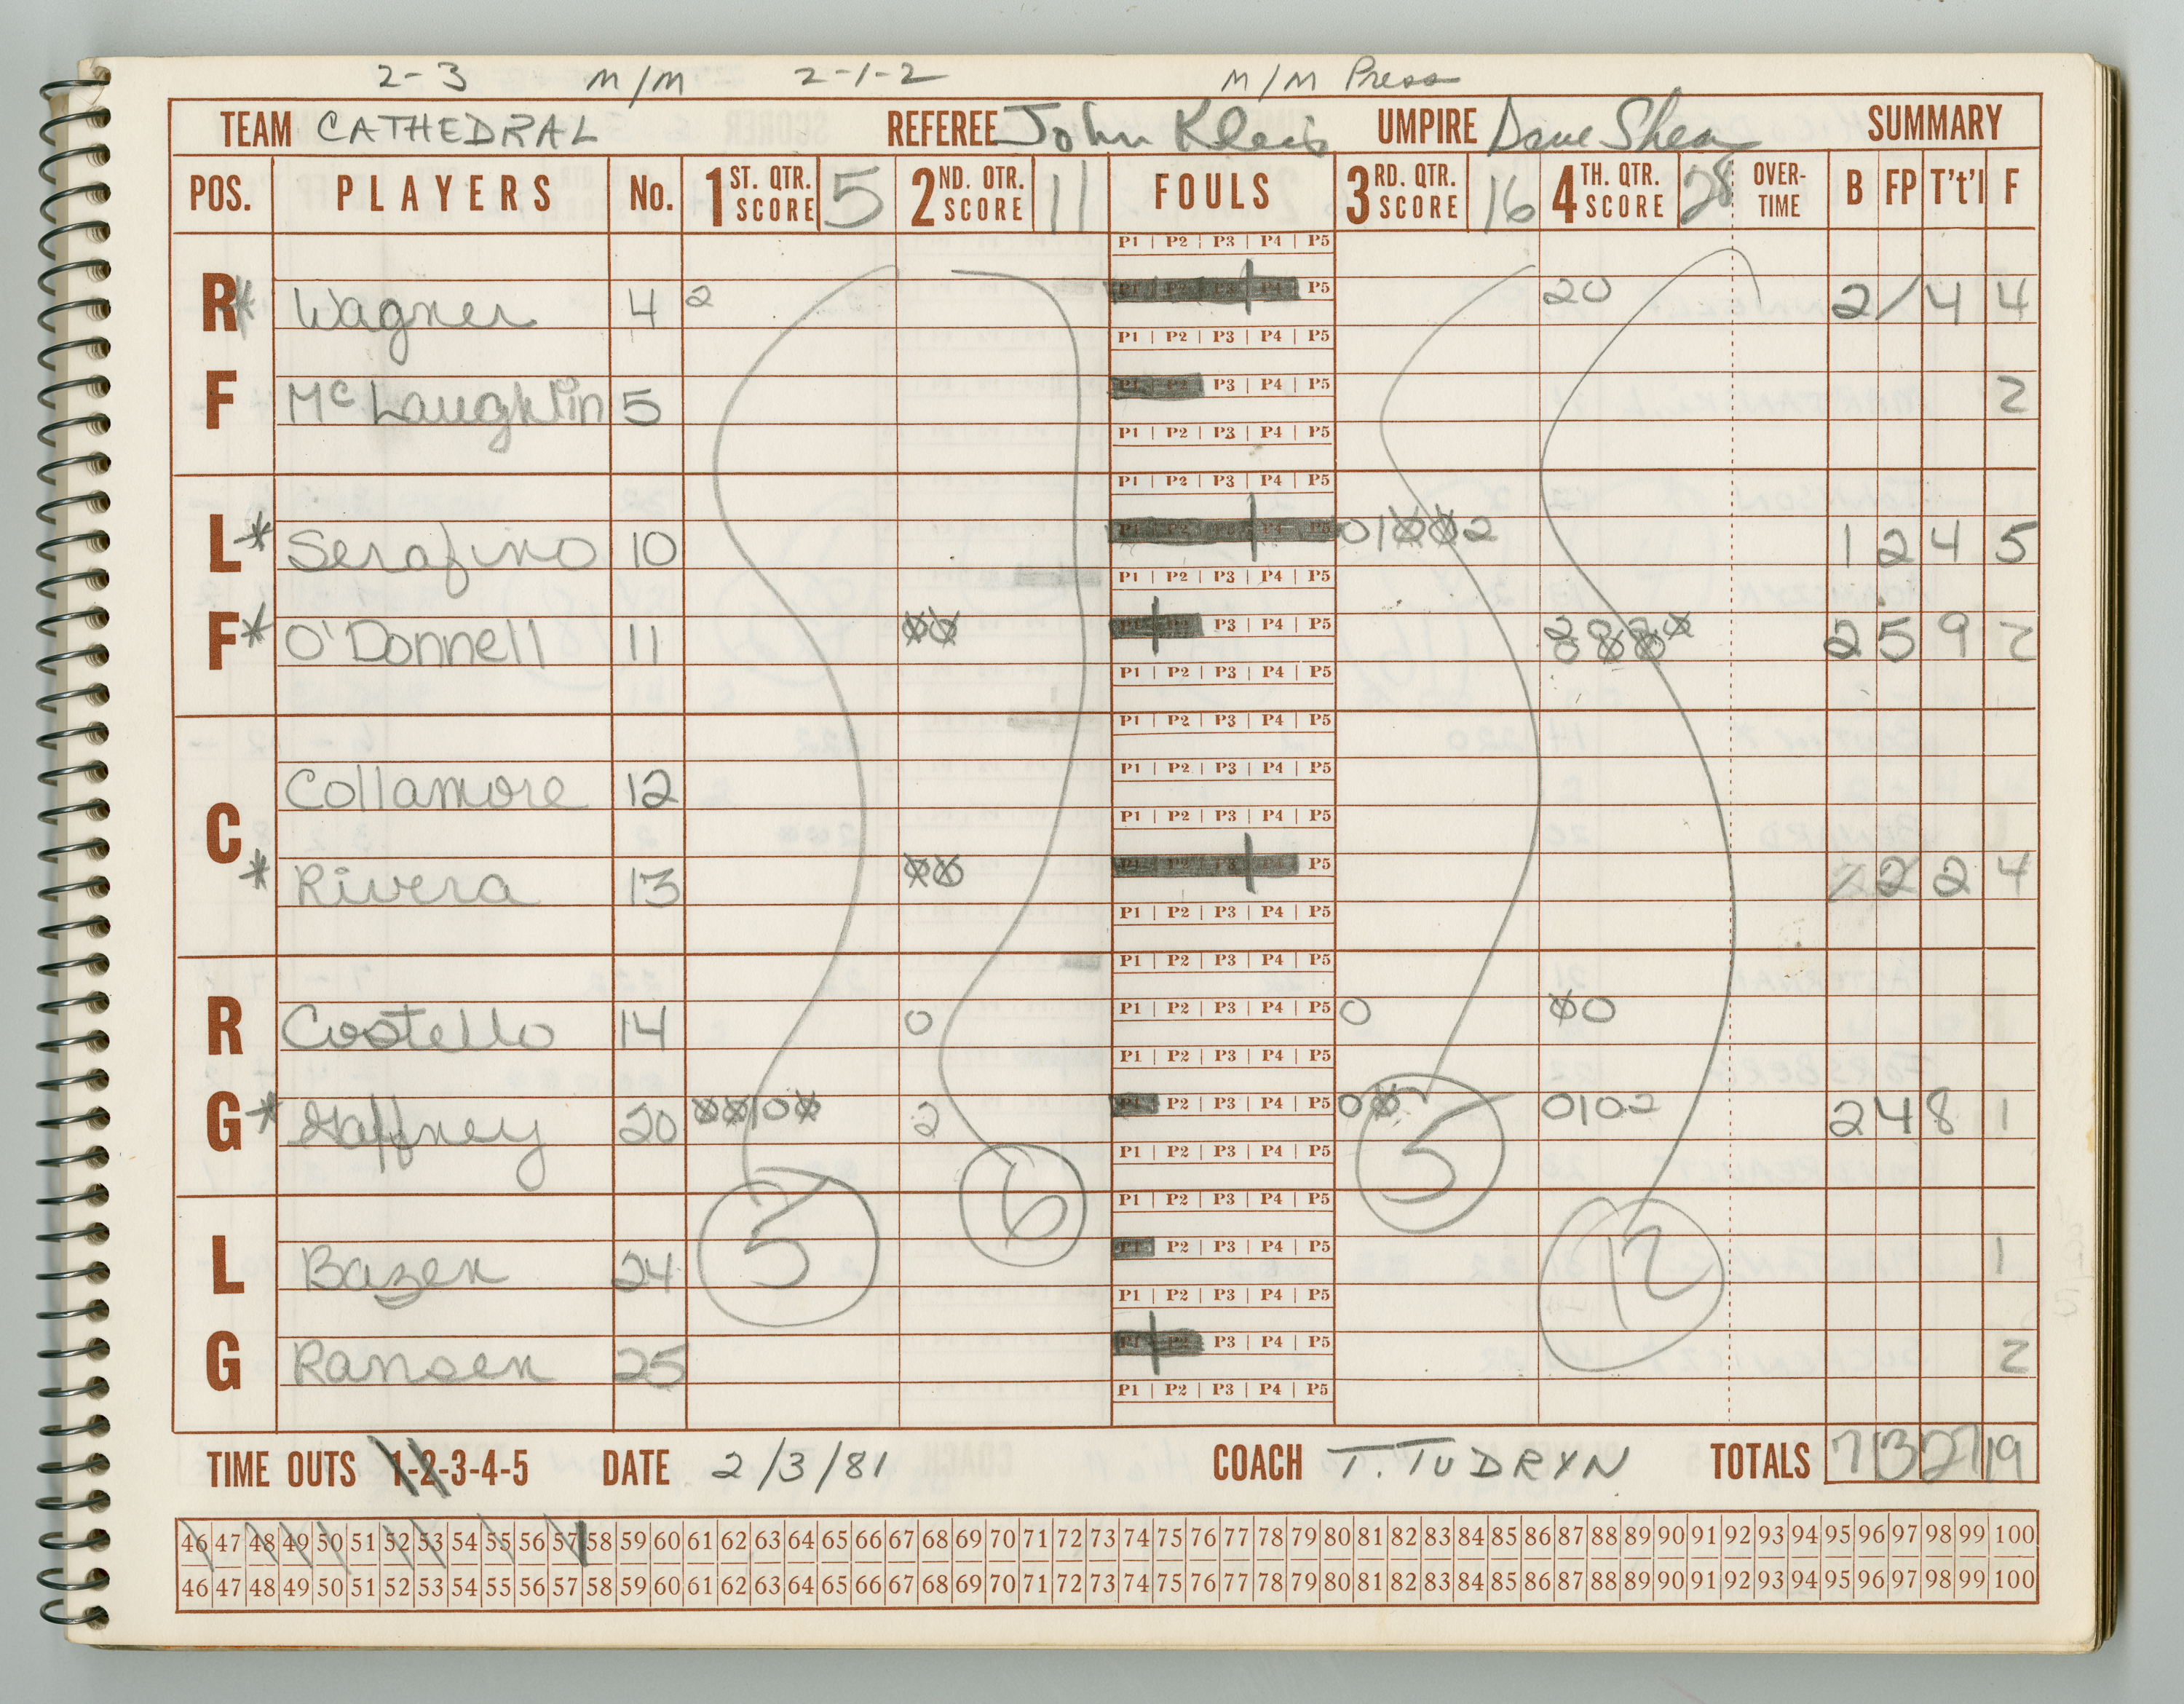 2-3 M/M 2-1-2 M/M Press
TEAM CATHEDRAL REFEREE John Kleis UMPIRE Dave Shea SUMMARY
POS. PLAYERS No. 1ST. QTR. SCORE 5 2ND. QTR. SCORE 11 FOULS 3RD. QTR. SCORE 16 4TH. QTR. SCORE 28 OVER-TIME B FP T't'l F
P1 | P2 | P3 | P4 | P5
R* Wagner 4 2 P5 20 2 / 4 4
P1 | P2 | P3 | P4 | P5
F McLaughlin 5 P3 | P4 | P5 2
P1 | P2 | P3 | P4 | P5
P1 | P2 | P3 | P4 | P5
L* Serafino 10 01 2 1 2 4 5
P1 | P2 | P3 | P4 | P5
F* O'Donnell 11 P3 | P4 | P5 2 5 9 2
P1 | P2 | P3 | P4 | P5
P1 | P2 | P3 | P4 | P5
Collamore 12 P1 | P2 | P3 | P4 | P5
C P1 | P2 | P3 | P4 | P5
* Rivera 13 P5 2 2 4
P1 | P2 | P3 | P4 | P5
P1 | P2 | P3 | P4 | P5
R Costello 14 0 P1 | P2 | P3 | P4 | P5 0 0
P1 | P2 | P3 | P4 | P5
G* Gaffney 20 10 2 P2 | P3 | P4 | P5 0 0102 2 4 8 1
P1 | P2 | P3 | P4 | P5
5 6 5 12
P1 | P2 | P3 | P4 | P5
L Bazen 24 P2 | P3 | P4 | P5 1
P1 | P2 | P3 | P4 | P5
G Ransen 25 P3 | P4 | P5 2
P1 | P2 | P3 | P4 | P5
TIME OUTS 1-2-3-4-5 DATE 2/3/81 COACH T. TUDRYN TOTALS 7 13 27 19
46 47 48 49 50 51 52 53 54 55 56 57 58 59 60 61 62 63 64 65 66 67 68 69 70 71 72 73 74 75 76 77 78 79 80 81 82 83 84 85 86 87 88 89 90 91 92 93 94 95 96 97 98 99 100
46 47 48 49 50 51 52 53 54 55 56 57 58 59 60 61 62 63 64 65 66 67 68 69 70 71 72 73 74 75 76 77 78 79 80 81 82 83 84 85 86 87 88 89 90 91 92 93 94 95 96 97 98 99 100